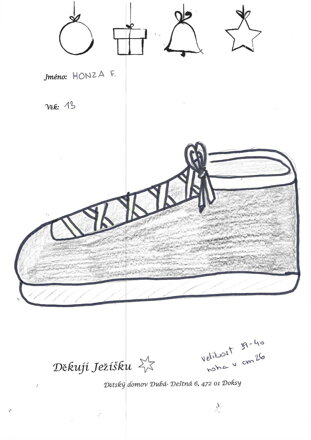 Jméno: HONZA F.
Věk: 13
velikost 39-40
noha v cm 26
Děkuji Ježíšku
Dětský domov Dubá- Deštná 6, 472 01 Doksy